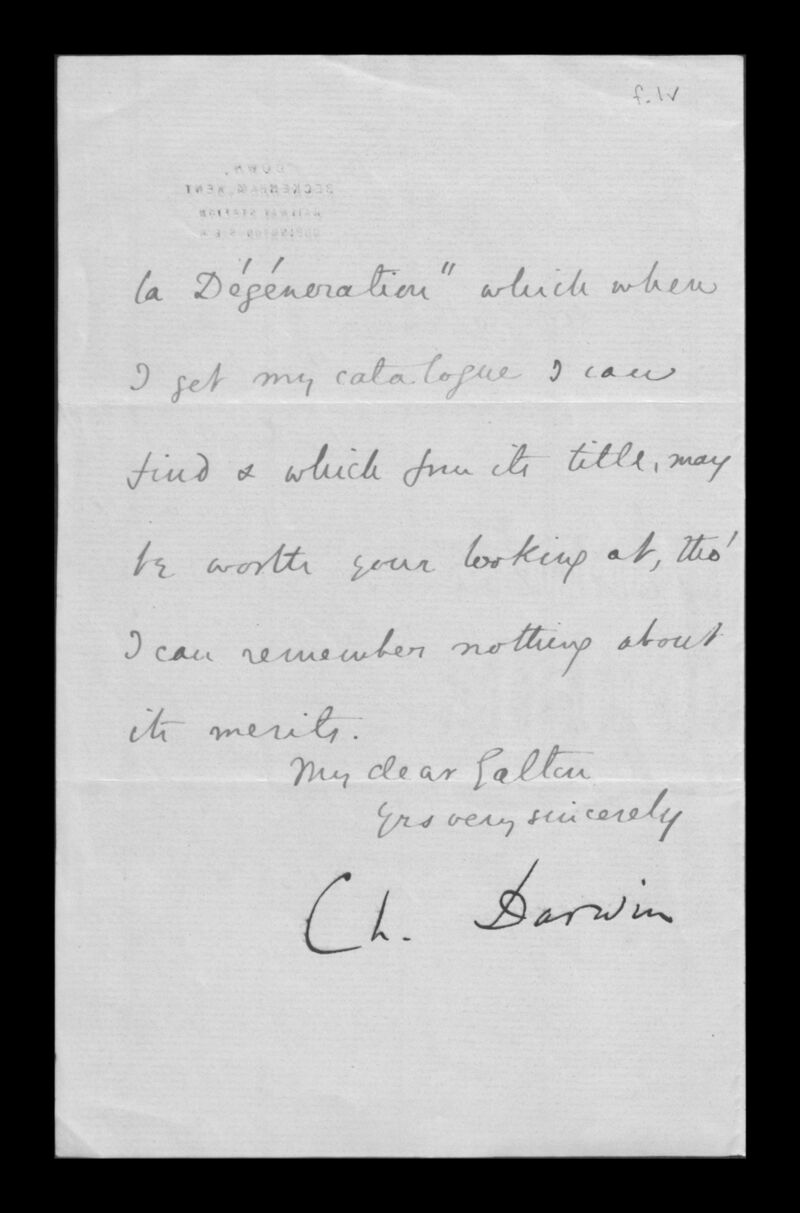 f.1v
DOWN,
BECKENHAM, KENT
RAILWAY STATION
ORPINGTON S.E.R.
la Dégéneration" which when
I get my catalogue I can
find & which from its title, may
be worth your looking at, tho'
I can remember nothing about
its merits.
My dear Galton
Yrs very sincerely
Ch. Darwin